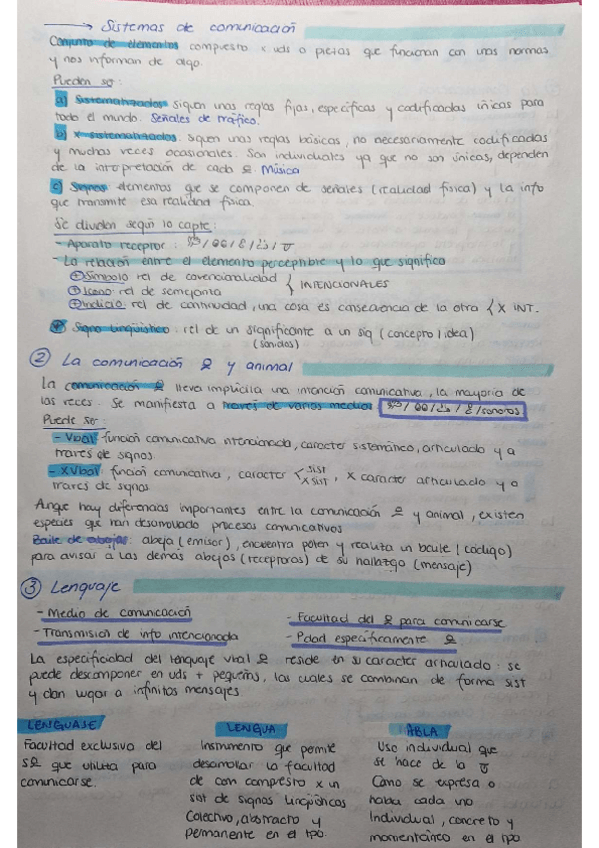 → Sistemas de comunicación
Conjunto de elementos compuesto x uds o piezas que funcionan con unas normas
y nos informan de algo.
Pueden ser:
a) Sistematizados siguen unas reglas fijas, específicas y codificadas únicas para
todo el mundo. Señales de tráfico.
b) X sistematizados. siguen unas reglas básicas, no necesariamente codificadas
y muchas veces ocasionales. Son individuales ya que no son únicas, dependen
de la interpretación de cada Música
c) Signos elementos que se componen de señales (realidad física) y la info
que transmite esa realidad física.
Se dividen según lo capte:
- Aparato receptor:
- La relación entre el elemento perceptible y lo que significa
Símbolo rel de convencionalidad
Icono: rel de semejanza
INTENCIONALES
Indicio: rel de continuidad, una cosa es consecuencia de la otra { X INT.
Signo lingüístico: rel de un significante a un sig (concepto/idea)
(sonidos)
2 La comunicación y animal
La comunicación lleva implícita una intención comunicativa, la mayoría de
las veces. Se manifiesta a través de varios medios /sonoros
Puede ser:
- Vbal: función comunicativa intencionada, caracter sistemático, articulado y a
través de signos
- X Vbal: función comunicativa, caracter < sist
X sist , X caracter articulado y a
través de signos
Anqe hay diferencias importantes entre la comunicación y animal, existen
especies que han desarrollado procesos comunicativos
Baile de abejas: abeja (emisor), encuentra polen y realiza un baile (código)
para avisar a las demás abejas (receptoras) de su hallazgo (mensaje)
3 Lenguaje
- Medio de comunicación
- Facultad del para comunicarse
- Transmisión de info intencionada
- Pdad específicamente
La especificidad del lenguaje vbal reside en su caracter articulado: se
puede descomponer en uds + pequeñas, las cuales se combinan de forma sist
y dan lugar a infinitos mensajes
LENGUAJE
Facultad exclusiva del
s que utiliza para
comunicarse.
LENGUA
Instrumento que permite
desarrollar la facultad
de com compuesto x un
sist de signos lingüísticos
Colectivo, abstracto y
permanente en el tpo.
ABLA
Uso individual que
se hace de la
Como se expresa o
habla cada uno
Individual, concreto y
momentáneo en el tpo